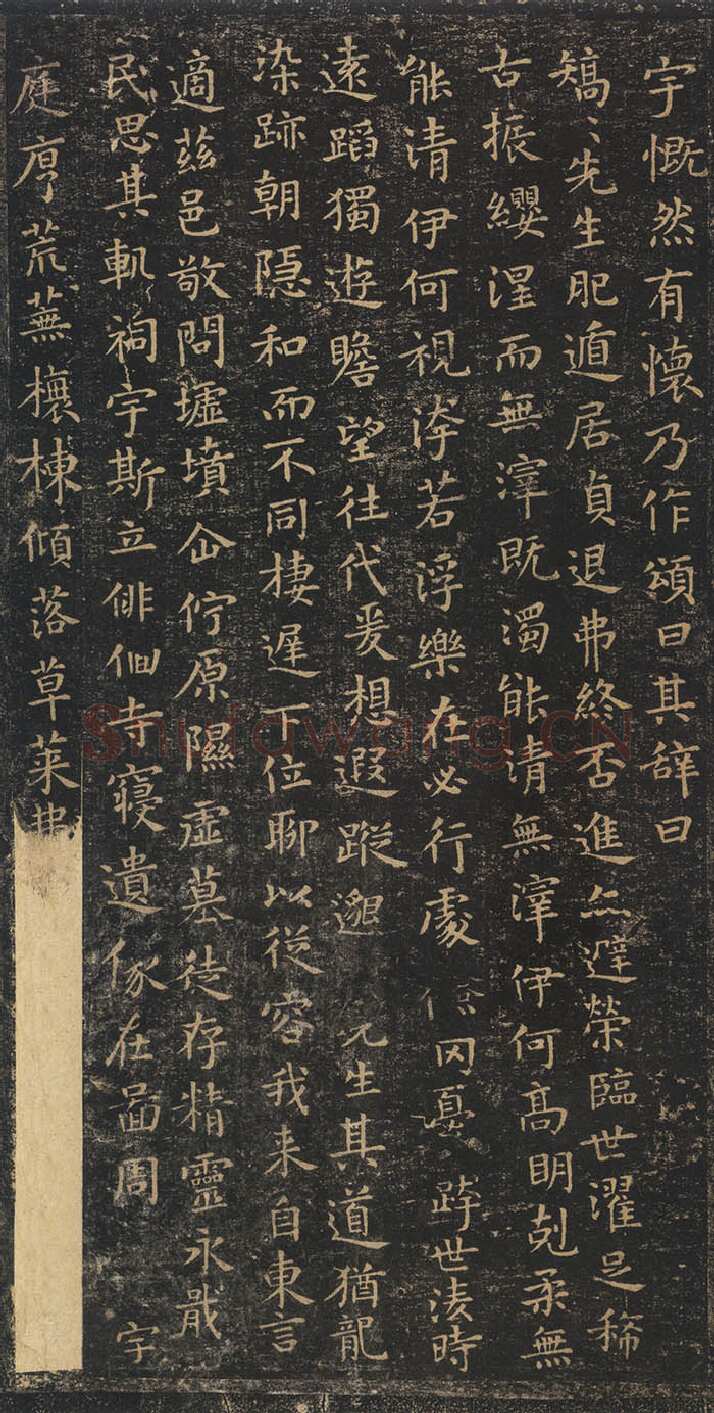 宇慨然有懷乃作頌曰其辭曰
矯〻先生肥遁居貞退弗終否進亦避榮臨世濯足稀
古振纓涅而無滓既濁能清無滓伊何高明剋柔無
能清伊何視洿若浮樂在必行處儉罔憂跨世淩時
遠蹈獨遊瞻望往代爰想遐蹤邈先生其道猶龍
染跡朝隱和而不同棲遲下位聊以從容我来自東言
適茲邑敬問墟墳企佇原隰虛墓徒存精靈永戢
民思其軌祠宇斯立俳佪寺寢遺像在圖周宇
庭序荒蕪榱棟傾落草萊弗
Shufawang.CN